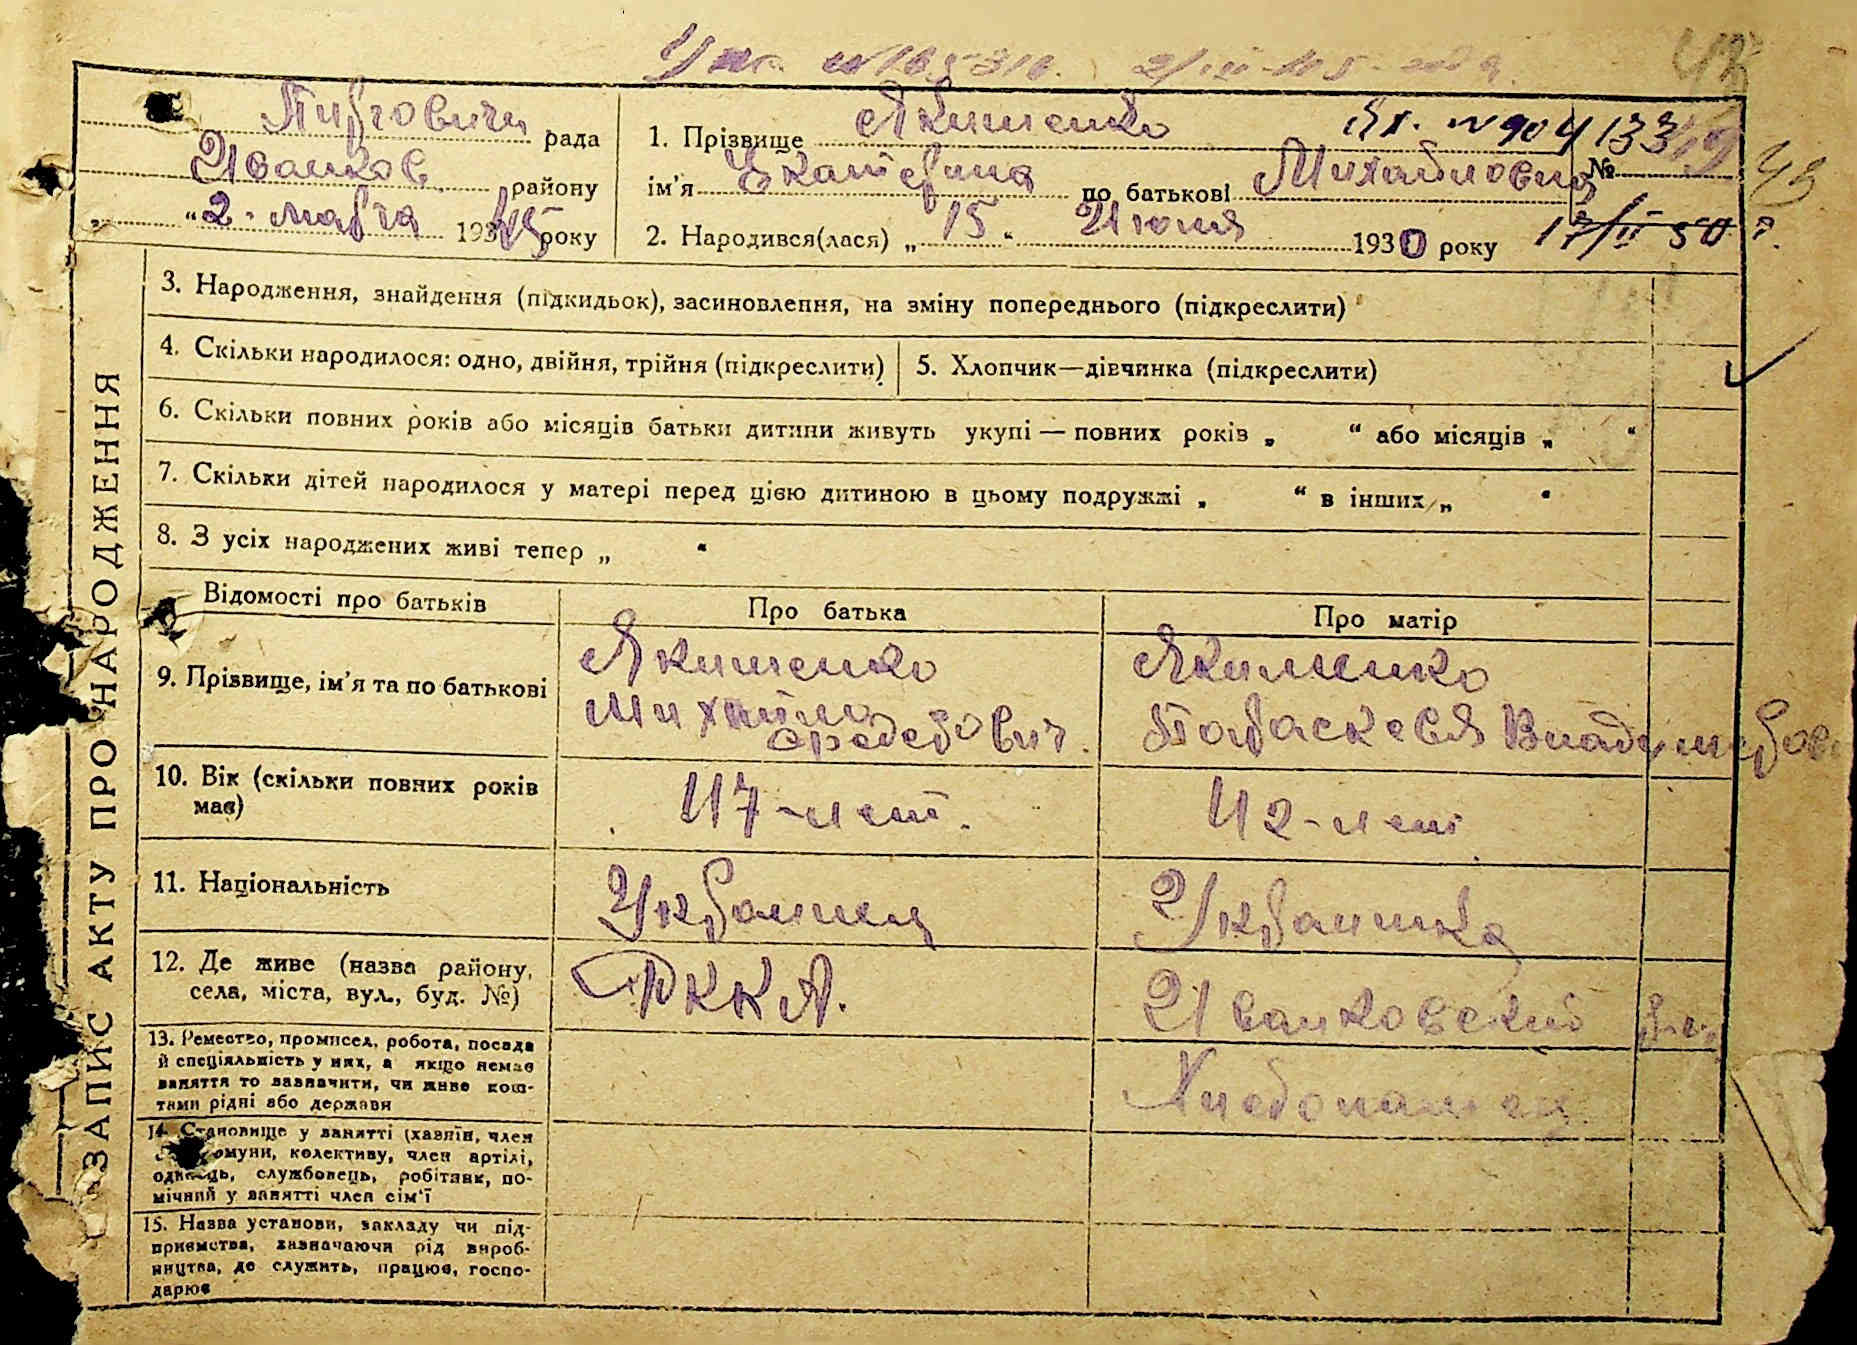 43
Пирговичи рада
Иванков району
„ “ 2. марта 1945 року
1. Прізвище Якименко
Вх. № 904 133 19
ім'я Екатерина по батькові Михайловна №
43
2. Народився(лася) „ 15 “ Июня 1930 року
17/II 50 г.
3. Народження, знайдення (підкидьок), засиновлення, на зміну попереднього (підкреслити)
4. Скільки народилося: одно, двійня, трійня (підкреслити)
5. Хлопчик—дівчинка (підкреслити)
6. Скільки повних років або місяців батьки дитини живуть укупі — повних років „ “ або місяців „ “
7. Скільки дітей народилося у матері перед цією дитиною в цьому подружжі „ “ в інших „ “
8. З усіх народжених живі тепер „ “
ЗАПИС АКТУ ПРО НАРОДЖЕННЯ
Відомості про батьків
Про батька
Про матір
9. Прізвище, ім'я та по батькові
Якименко
Михайло
Федорович.
Якименко
Параскевя
10. Вік (скільки повних років
має)
47-лет.
42-лет
11. Національність
Украинец
Украинка
12. Де живе (назва району,
села, міста, вул., буд. №)
РККА.
Иванковский р-н
13. Ремество, промисел, робота, посада
й спеціяльність у них, а якщо немає
заняття то зазначити, чи живе кош-
тами рідні або держави
Хлебопашец
14. Становище у занятті (хазяїн, член
комуни, колективу, член артілі,
одинець, службовець, робітник, по-
мічний у занятті член сім'ї
15. Назва установи, закладу чи під-
приємства, зазначаючи рід вироб-
ництва, де служить, працює, госпо-
дарює